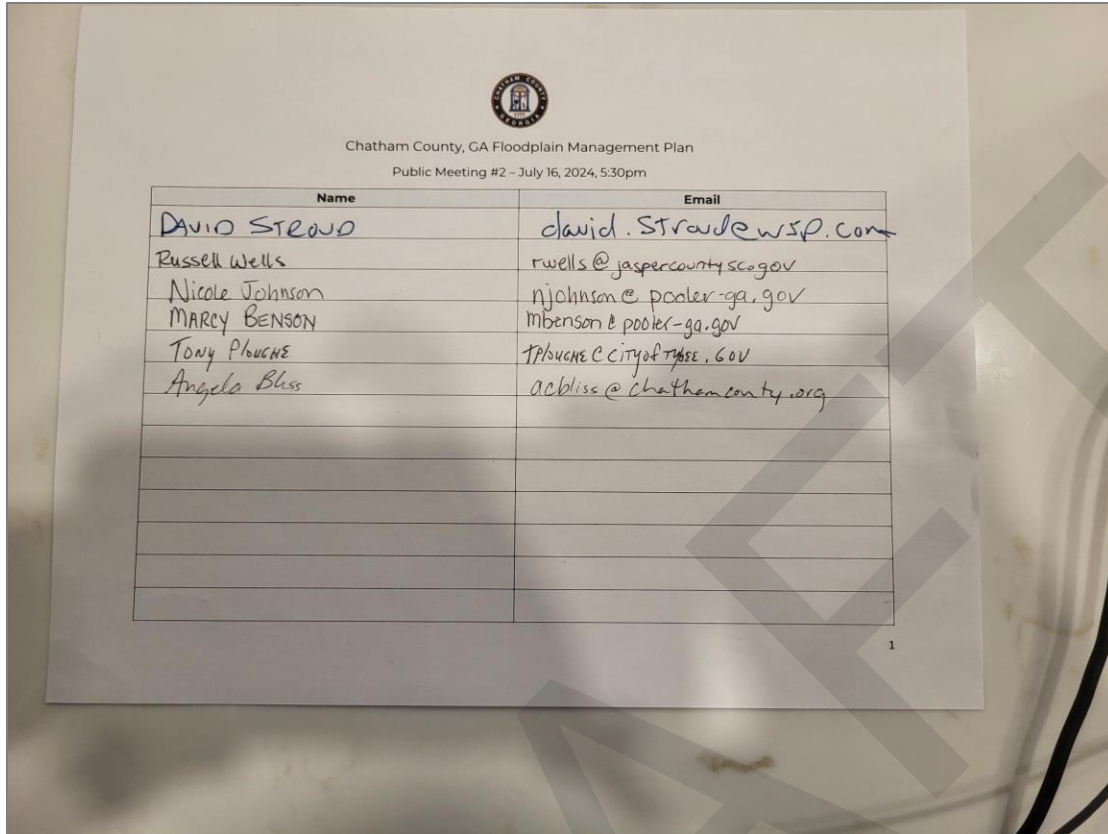 CHATHAM COUNTY
GEORGIA
Chatham County, GA Floodplain Management Plan
Public Meeting #2 – July 16, 2024, 5:30pm
Name Email
DAVID STROUD david.Stroud@wsp.com
Russell Wells rwells@jaspercountysc.gov
Nicole Johnson njohnson@pooler-ga.gov
MARCY BENSON mbenson@pooler-ga.gov
TONY PLOUGHE TPLOUGHE@CITYofTYBEE.GOV
Angela Bliss acbliss@chathamcounty.org
1